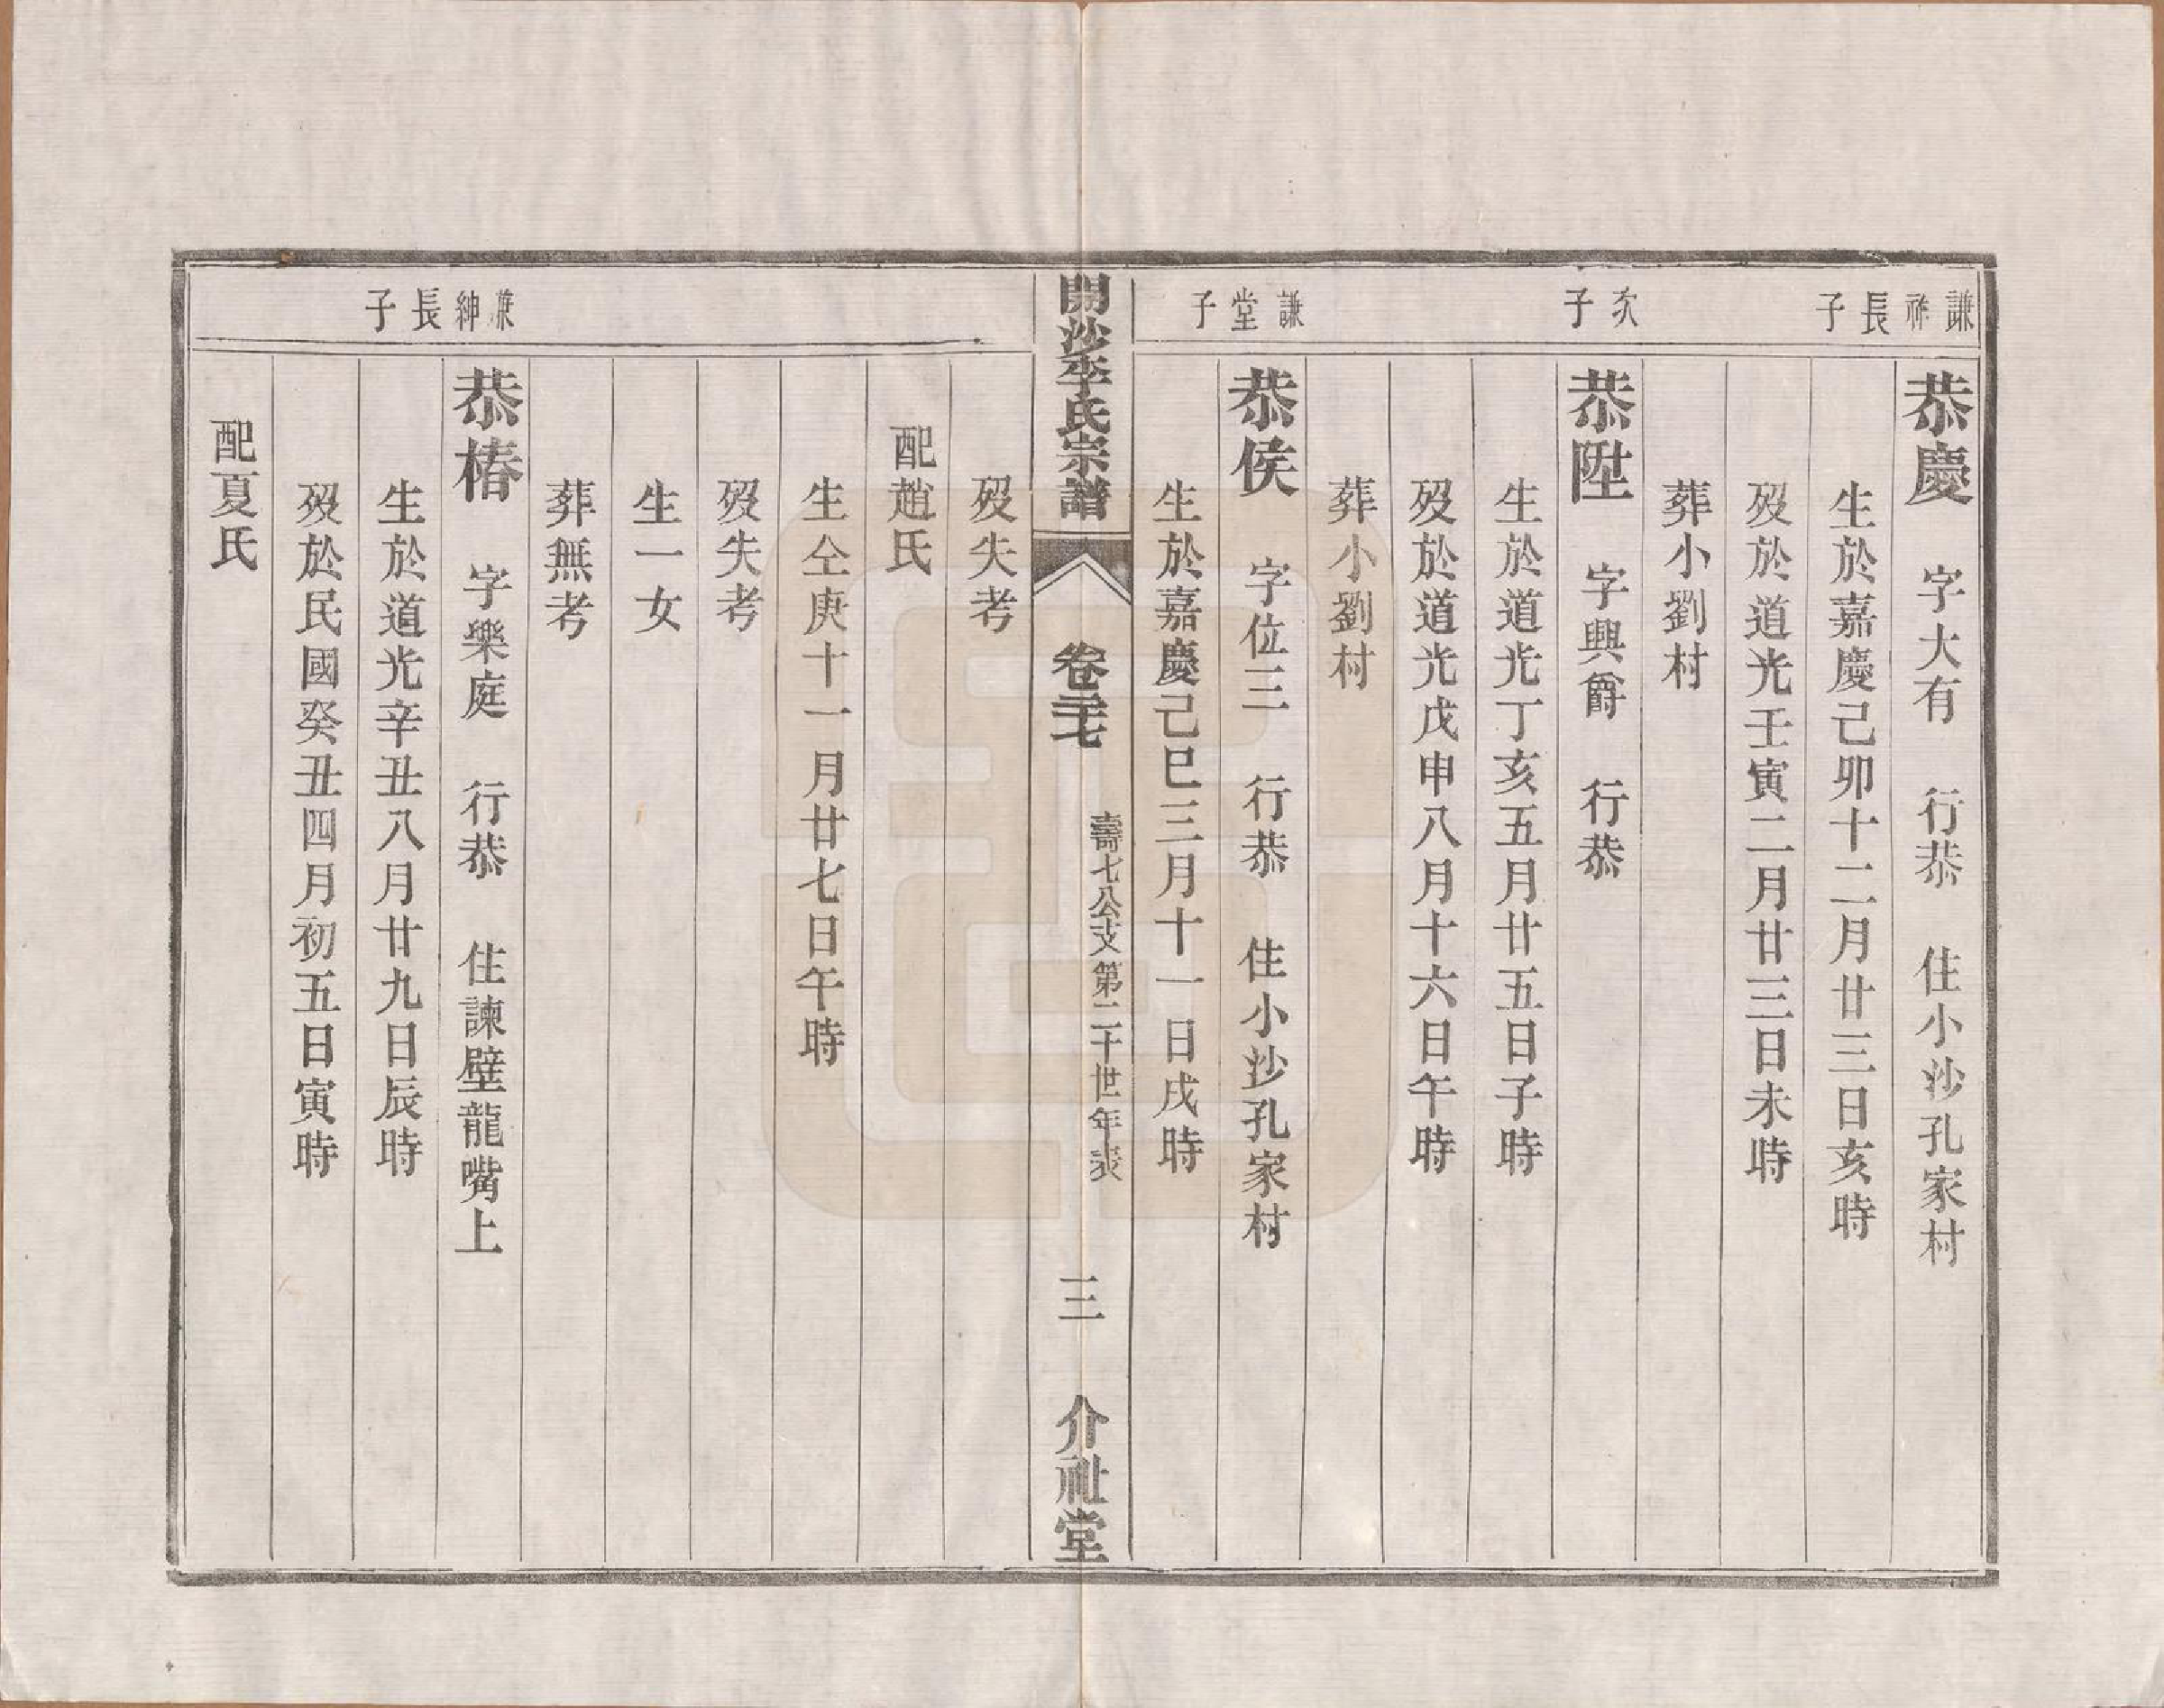 謙祥長子
恭慶　字大有　行恭　住小沙孔家村
生於嘉慶己卯十二月廿三日亥時
歿於道光壬寅二月廿三日未時
葬小劉村
次子
恭陞　字興爵　行恭
生於道光丁亥五月廿五日子時
歿於道光戊申八月十六日午時
葬小劉村
謙堂子
恭侯　字位三　行恭　住小沙孔家村
生於嘉慶己巳三月十一日戌時
開沙李氏宗譜
卷三十七
壽七八公支第二十世年表
三
介祉堂
歿失考
配趙氏
生仝庚十一月廿七日午時
歿失考
生一女
葬無考
謙紳長子
恭椿　字樂庭　行恭　住諫壁龍嘴上
生於道光辛丑八月廿九日辰時
歿於民國癸丑四月初五日寅時
配夏氏